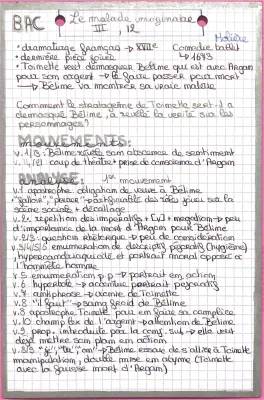 BAC
Le malade imaginaire
III, 12
Molière
• dramaturge français → XVIIe Comédie ballet
• dernière pièce jouée → 1673
• Toinette veut démasquer Béline qui est avec Argan
pour son argent → le faire passer pour mort
→ Béline va montrer sa vraie nature
Comment le stratagème de Toinette sert-il a
démasquer Béline, à révéler la vérité sur les
personnages?
MOUVEMENTS:
v. 1/3: Béline révèle son absence de sentiment
coup de théâtre + prise de conscience d'Argan
ANALYSE: 1er mouvement
v.1 apostrophe obligation de veuve à Béline
des rôles joués sur la
scène sociale + décallage
v.2: répétition des impératifs + négation → peu
d'importance de la mort d'Argan pour Béline
v.2/3: question rhétorique → peu de considération
v.3/4/5/6 énumération de péjoratifs (hygiène)
hypercondriaque et portrait moral opposé à
l'honnête homme
v.5 énumération p.p → portrait en action
v.6 hyperbole → accentue portrait péjoratif
v.7 antiphrase → acerbe de Toinette
v.8 "il faut" → sang froid de Béline
v.8 apostrophe Toinette pour en faire sa complice
v.10 champ lex de l'argent → attention de Béline
v.9 prop. introduite par la conj. sub → elle veut
déjà mettre son plan en action
→ Béline essaie de s'allier à Toinette
manipulation, double mise en abyme (Toinette
avec la fausse mort d'Argan)